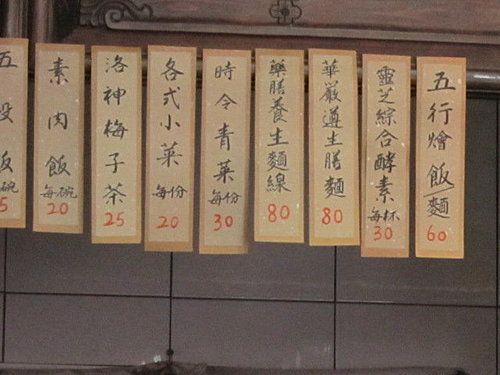 五行燴飯麵
60
靈芝綜合酵素
每杯
30
華嚴遵生膳麵
80
藥膳養生麵線
80
時令青菜
每份
30
各式小菜
每份
20
洛神梅子茶
25
素肉飯
每碗
20
五穀飯
碗
5